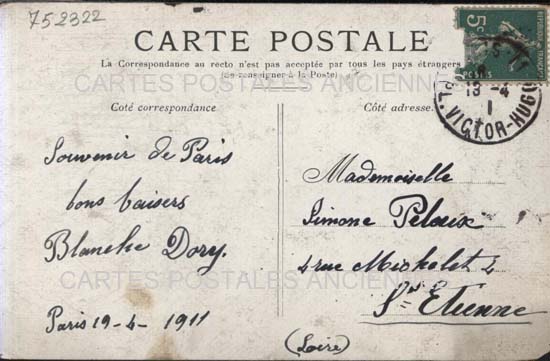 752322
CARTE POSTALE
La Correspondance au recto n'est pas acceptée par tous les pays étrangers
(se renseigner à la Poste)
CARTES POSTALES ANCIENNES
Côté correspondance
Côté adresse
Souvenir de Paris
bons baisers
Blanche Dory.
CARTES POSTALES ANCIENNES
Paris 19-4-1911
5c
POSTES
13 -4
PL. VICTOR-HUGO
Mademoiselle
Simone Peloux
4 rue Michelet 4
St Etienne
(Loire)